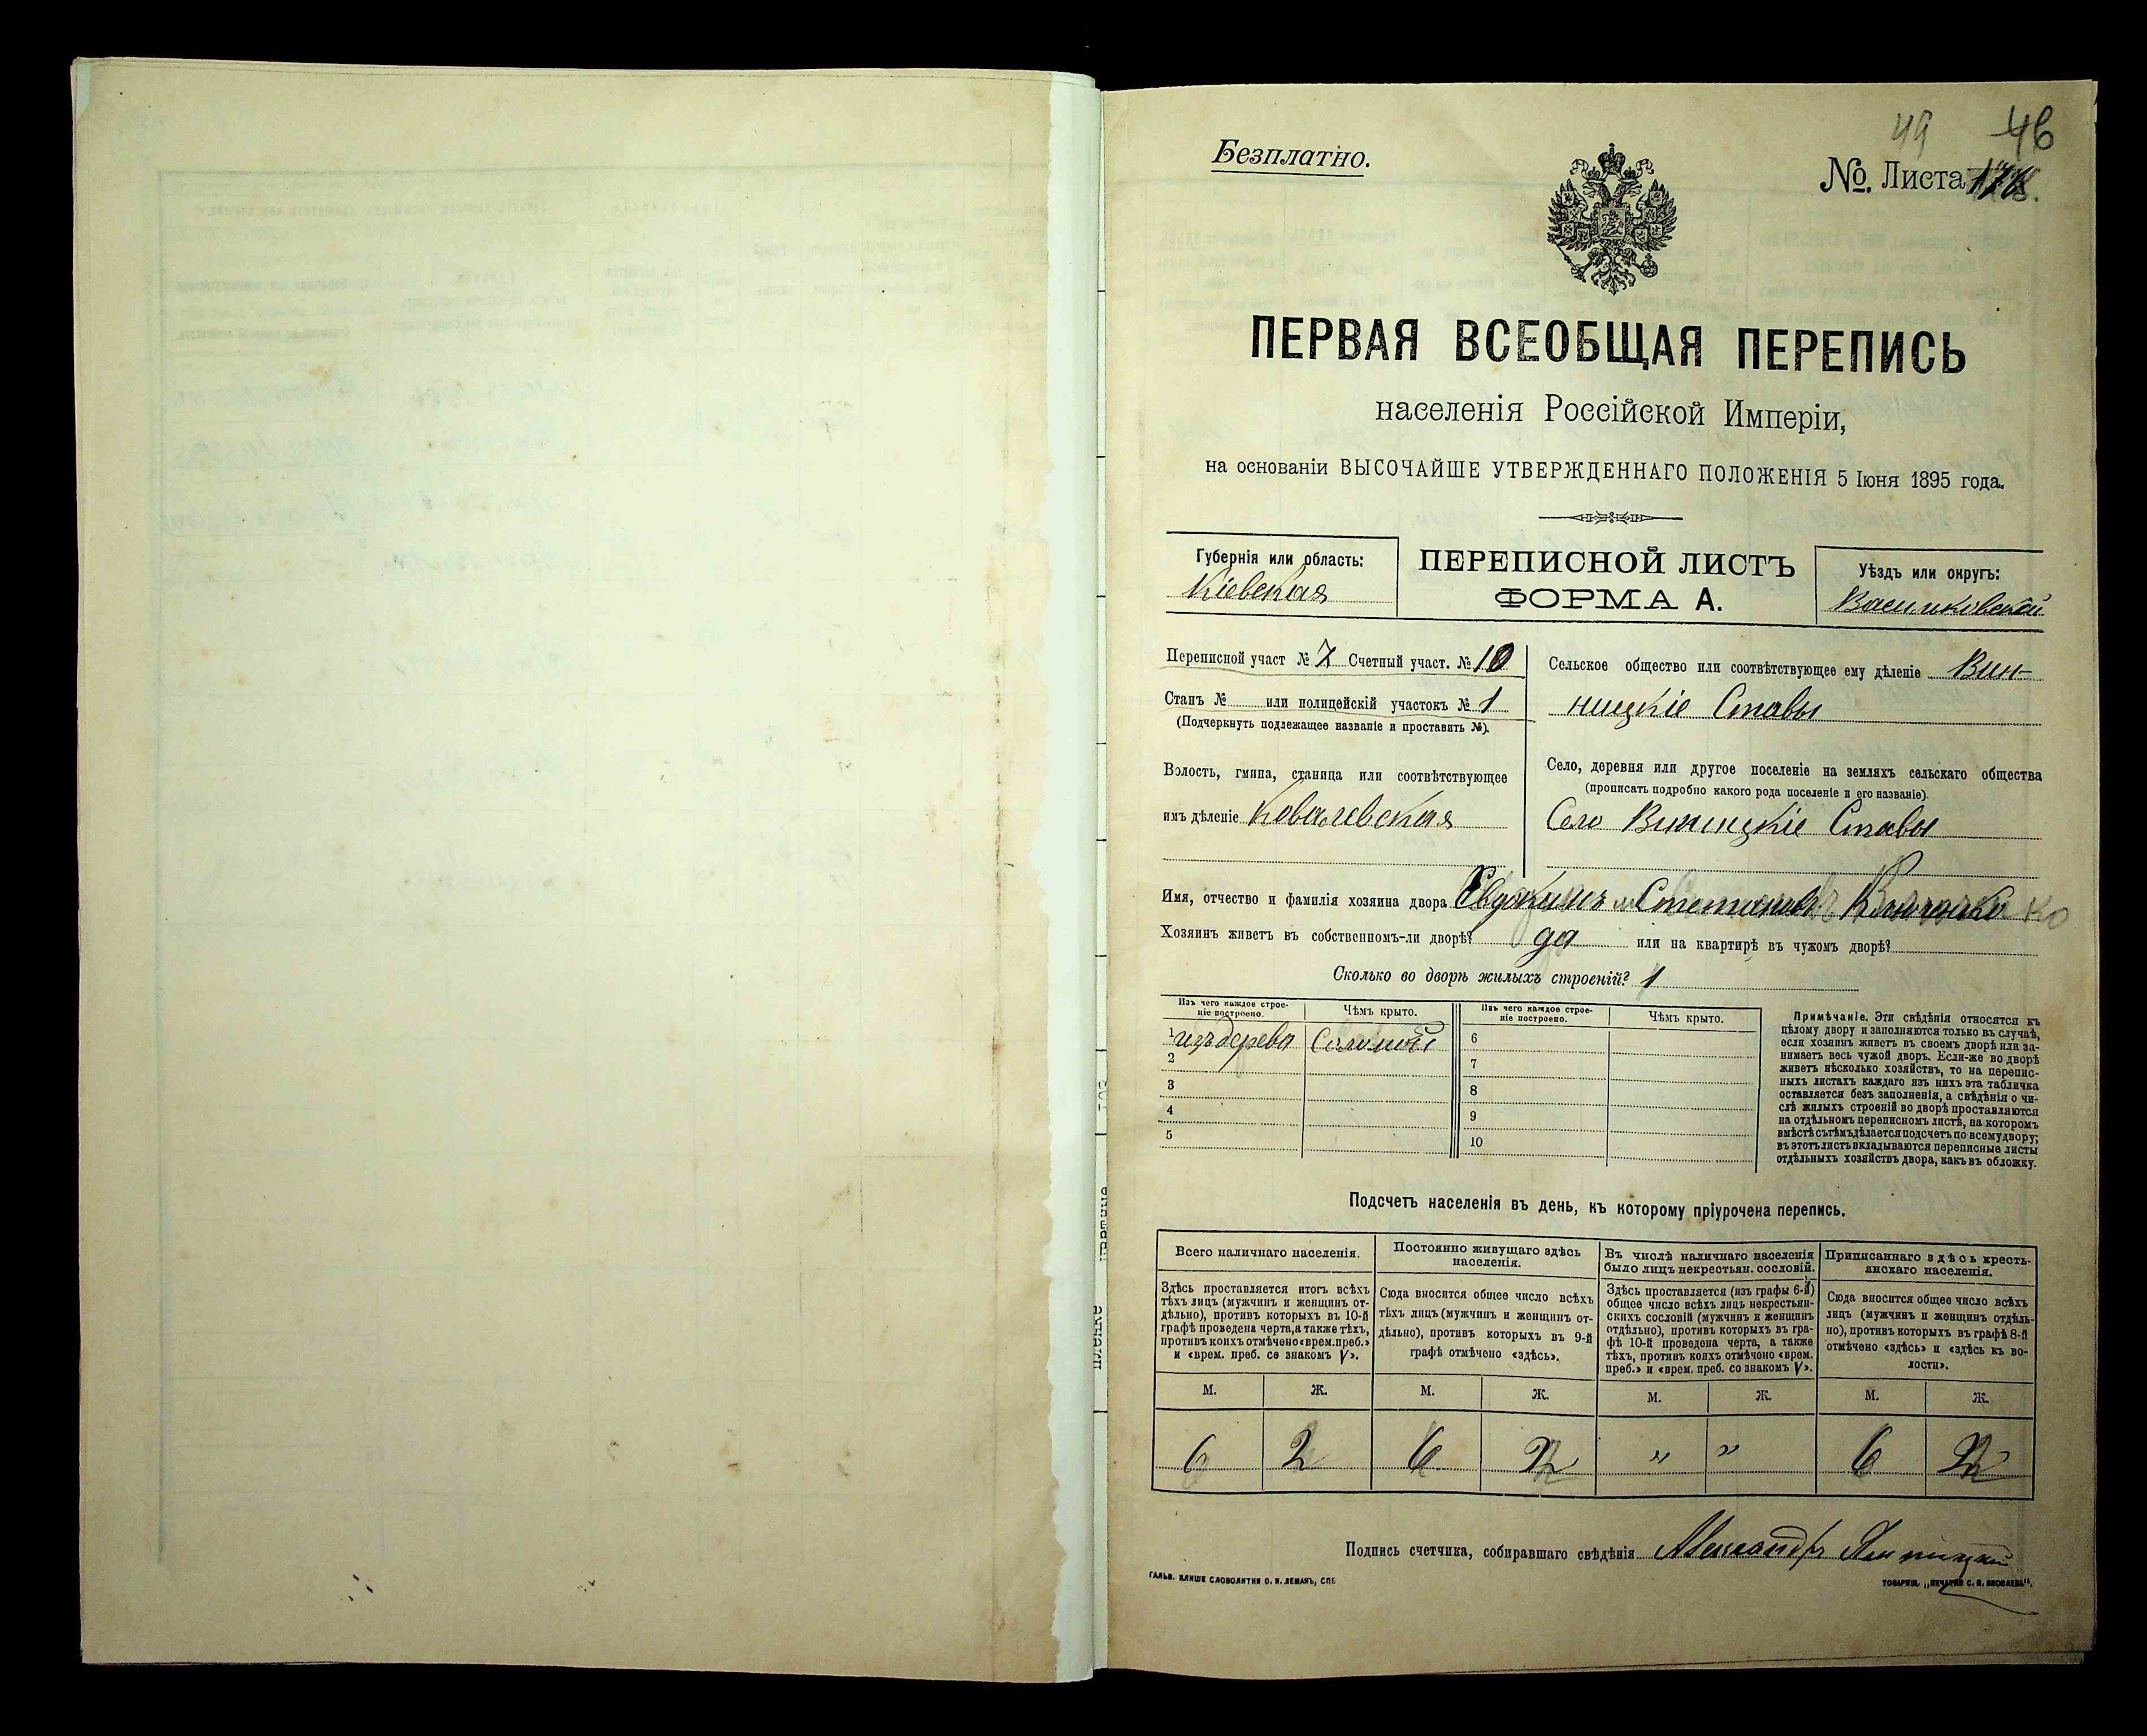 49 46
Безплатно.
№. Листа
ПЕРВАЯ ВСЕОБЩАЯ ПЕРЕПИСЬ
населенія Россійской Имперіи,
на основаніи ВЫСОЧАЙШЕ УТВЕРЖДЕННАГО ПОЛОЖЕНІЯ 5 Іюня 1895 года.
Губернія или область:
Кіевская
ПЕРЕПИСНОЙ ЛИСТЪ
ФОРМА А.
Уѣздъ или округъ:
Васильковскій
Переписной участ № 7 Счетный участ. № 10
Станъ № или полицейскій участокъ № 1
(Подчеркнуть подлежащее названіе и проставить №).
Волость, гмина, станица или соотвѣтствующее
имъ дѣленіе Ковалевская
Сельское общество или соотвѣтствующее ему дѣленіе Вин-
ницкіе Ставы
Село, деревня или другое поселеніе на земляхъ сельскаго общества
(прописать подробно какого рода поселеніе и его названіе).
Село Винницкіе Ставы
Имя, отчество и фамилія хозяина двора Евдокимъ Степановъ
Хозяинъ живетъ въ собственномъ-ли дворѣ? да или на квартирѣ въ чужомъ дворѣ?
Сколько во дворѣ жилыхъ строеній? 1
Изъ чего каждое строе-
ніе построено.
Чѣмъ крыто.
Изъ чего каждое строе-
ніе построено.
Чѣмъ крыто.
1 изъ дерева Соломой 6
2 7
3 8
4 9
5 10
Примѣчаніе. Эти свѣдѣнія относятся къ
цѣлому двору и заполняются только въ случаѣ,
если хозяинъ живетъ въ своемъ дворѣ или за-
нимаетъ весь чужой дворъ. Если-же во дворѣ
живетъ нѣсколько хозяйствъ, то на перепис-
ныхъ листахъ каждаго изъ нихъ эта табличка
оставляется безъ заполненія, а свѣдѣнія о чи-
слѣ жилыхъ строеній во дворѣ проставляются
на отдѣльномъ переписномъ листѣ, на которомъ
вмѣстѣ съ тѣмъ дѣлается подсчетъ по всему двору;
въ этотъ листъ вкладываются переписные листы
отдѣльныхъ хозяйствъ двора, какъ въ обложку.
Подсчетъ населенія въ день, къ которому пріурочена перепись.
Всего наличнаго населенія.
Здѣсь проставляется итогъ всѣхъ
тѣхъ лицъ (мужчинъ и женщинъ от-
дѣльно), противъ которыхъ въ 10-й
графѣ проведена черта, а также тѣхъ,
противъ коихъ отмѣчено «врем. преб.»
и «врем. преб. со знакомъ V».
Постоянно живущаго здѣсь
населенія.
Сюда вносится общее число всѣхъ
тѣхъ лицъ (мужчинъ и женщинъ от-
дѣльно), противъ которыхъ въ 9-й
графѣ отмѣчено «здѣсь».
Въ числѣ наличнаго населенія
было лицъ некрестьян. сословій.
Здѣсь проставляется (изъ графы 6-й)
общее число всѣхъ лицъ некрестьян-
скихъ сословій (мужчинъ и женщинъ
отдѣльно), противъ которыхъ въ гра-
фѣ 10-й проведена черта, а также
тѣхъ, противъ коихъ отмѣчено «врем.
преб.» и «врем. преб. со знакомъ V».
Приписаннаго здѣсь кресть-
янскаго населенія.
Сюда вносится общее число всѣхъ
лицъ (мужчинъ и женщинъ отдѣль-
но), противъ которыхъ въ графѣ 8-й
отмѣчено «здѣсь» и «здѣсь къ во-
лости».
М. Ж. М. Ж. М. Ж. М. Ж.
6 2 6 2 „ „ 6 2
Подпись счетчика, собиравшаго свѣдѣнія Александръ
ГАЛЬВ. КЛИШЕ СЛОВОЛИТНИ О. И. ЛЕМАНЪ, СПБ
ТОВАРИЩ. „ПЕЧАТНЯ С. П. ЯКОВЛЕВА".